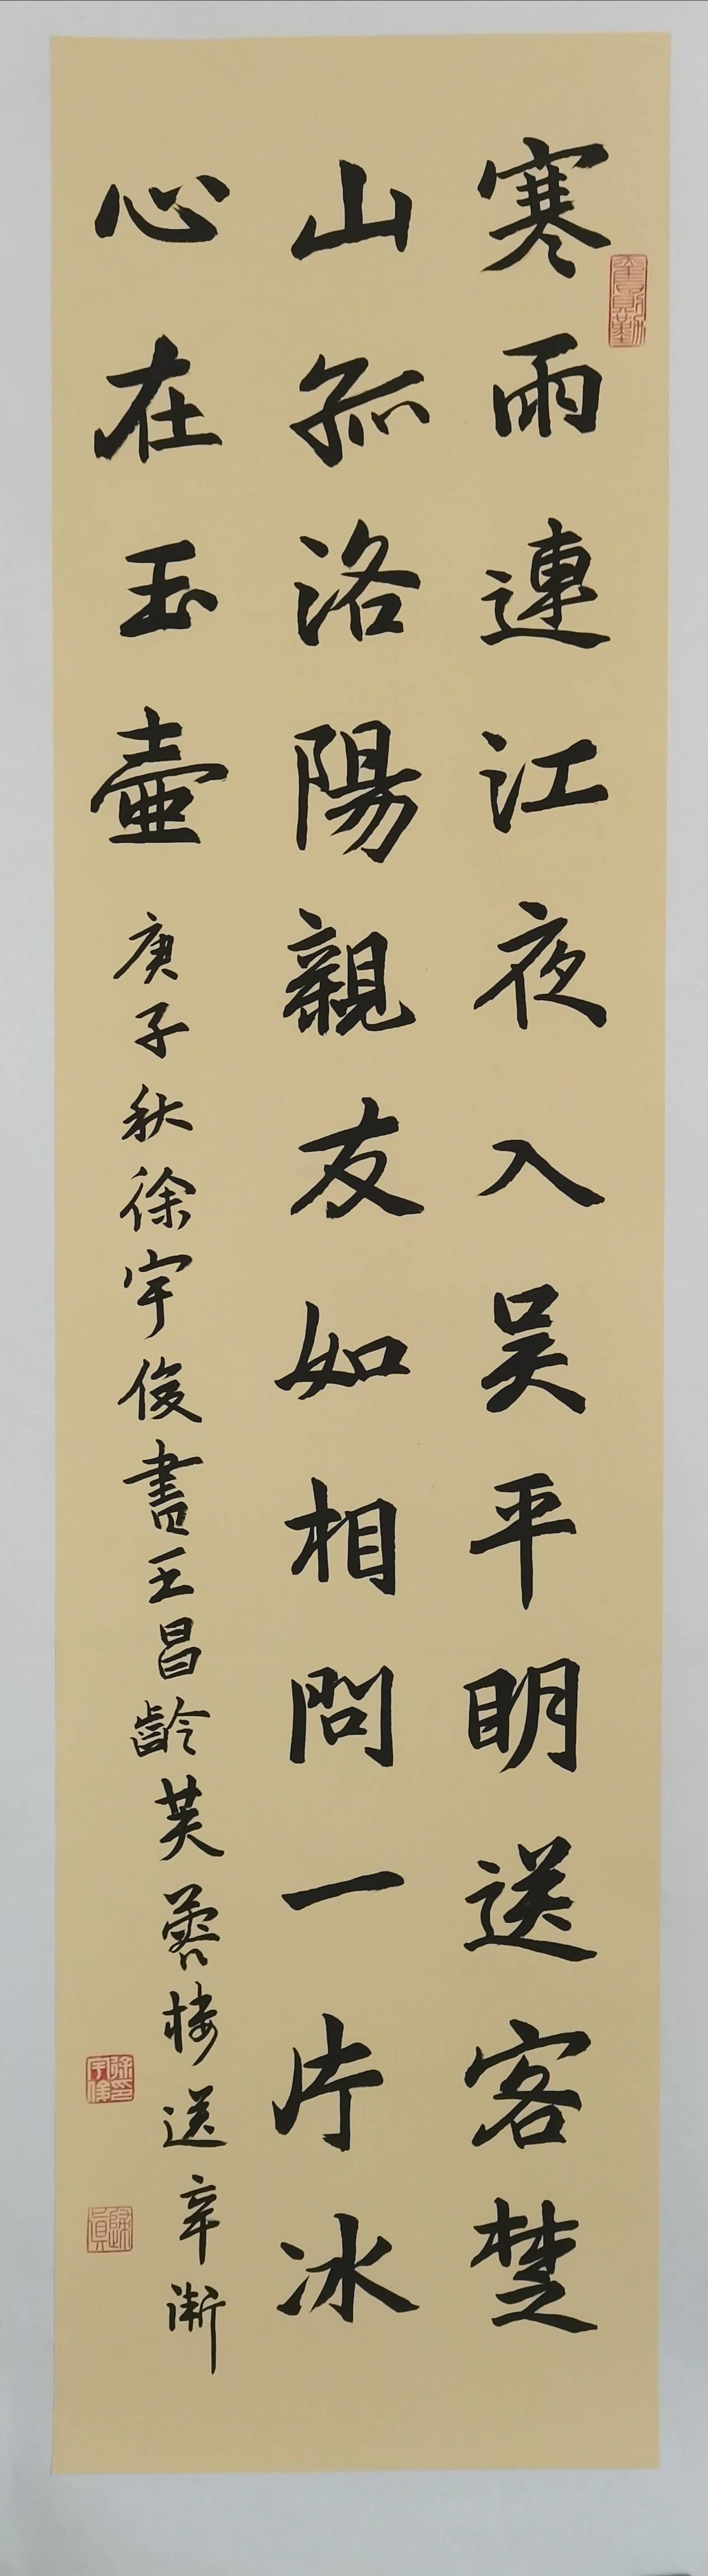 寒雨連江夜入吴平明送客楚
山孤洛陽親友如相問一片冰
心在玉壷庚子秋徐宇俊書王昌齡芙蓉楼送辛漸
徐宇俊印